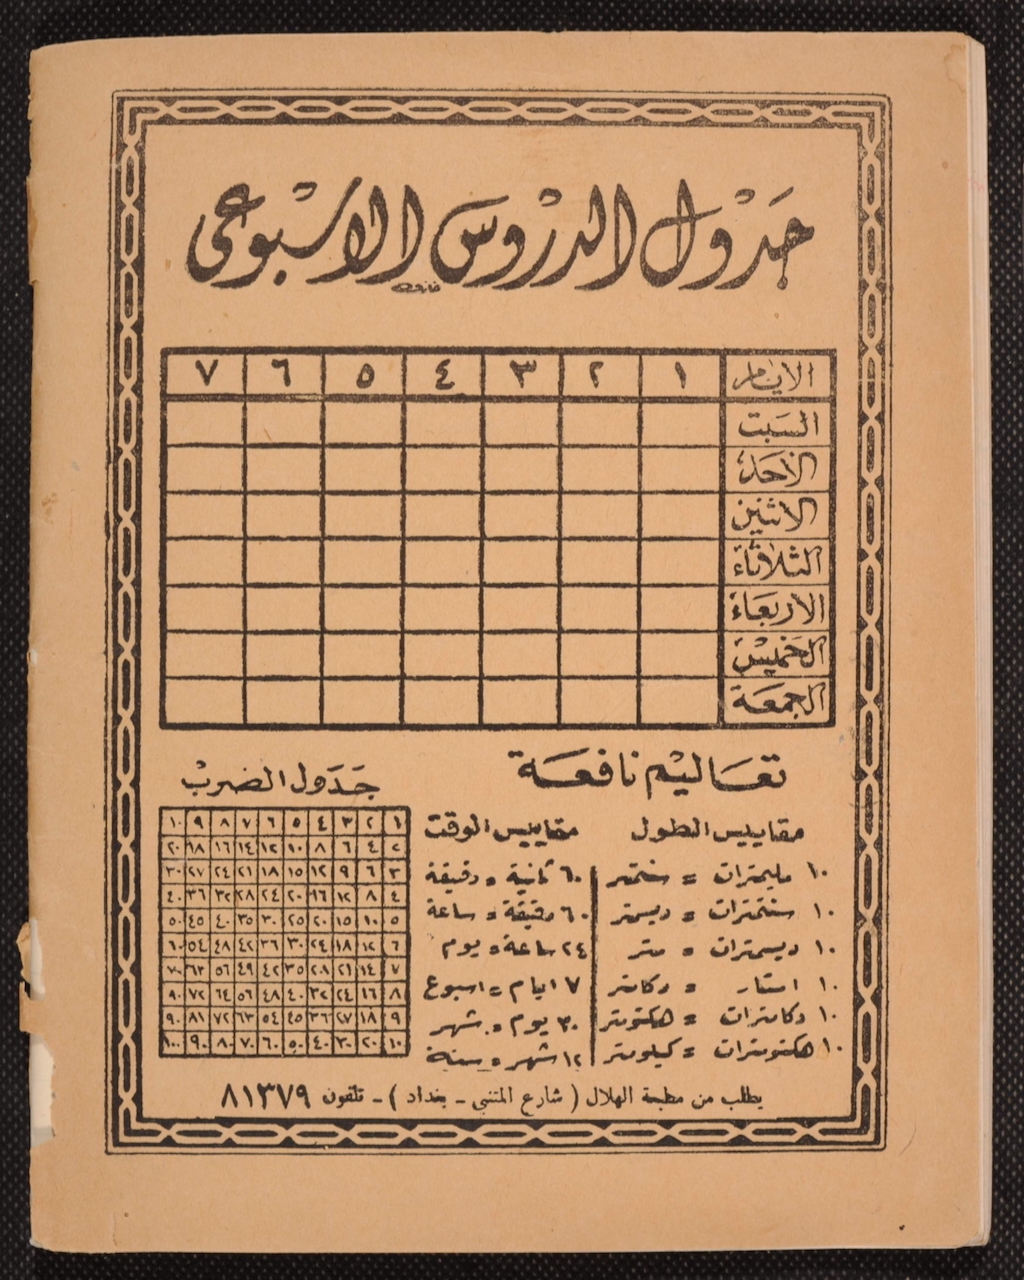 جدول الدروس الاسبوعي
الايام ١ ٢ ٣ ٤ ٥ ٦ ٧
السبت
الأحد
الاثنين
الثلاثاء
الاربعاء
الخميس
الجمعة
تعاليم نافعة
مقاييس الطول
١٠ مليمترات = سنتمتر
١٠ سنتمترات = ديسمتر
١٠ ديسمترات = متر
١٠ امتار = دكامتر
١٠ دكامترات = هكتومتر
١٠ هكتومترات = كيلومتر
مقاييس الوقت
٦٠ ثانية = دقيقة
٦٠ دقيقة = ساعة
٢٤ ساعة = يوم
٧ ايام = اسبوع
٣٠ يوم = شهر
١٢ شهر = سنة
جدول الضرب
١ ٢ ٣ ٤ ٥ ٦ ٧ ٨ ٩ ١٠
٢ ٤ ٦ ٨ ١٠ ١٢ ١٤ ١٦ ١٨ ٢٠
٣ ٦ ٩ ١٢ ١٥ ١٨ ٢١ ٢٤ ٢٧ ٣٠
٤ ٨ ١٢ ١٦ ٢٠ ٢٤ ٢٨ ٣٢ ٣٦ ٤٠
٥ ١٠ ١٥ ٢٠ ٢٥ ٣٠ ٣٥ ٤٠ ٤٥ ٥٠
٦ ١٢ ١٨ ٢٤ ٣٠ ٣٦ ٤٢ ٤٨ ٥٤ ٦٠
٧ ١٤ ٢١ ٢٨ ٣٥ ٤٢ ٤٩ ٥٦ ٦٣ ٧٠
٨ ١٦ ٢٤ ٣٢ ٤٠ ٤٨ ٥٦ ٦٤ ٧٢ ٩٠
٩ ١٨ ٢٧ ٣٦ ٤٥ ٥٤ ٦٣ ٧٢ ٨١ ٩٠
١٠ ٢٠ ٣٠ ٤٠ ٥٠ ٦٠ ٧٠ ٨٠ ٩٠ ١٠٠
يطلب من مطبعة الهلال ( شارع المتنبي - بغداد ) - تلفون ٨١٣٧٩